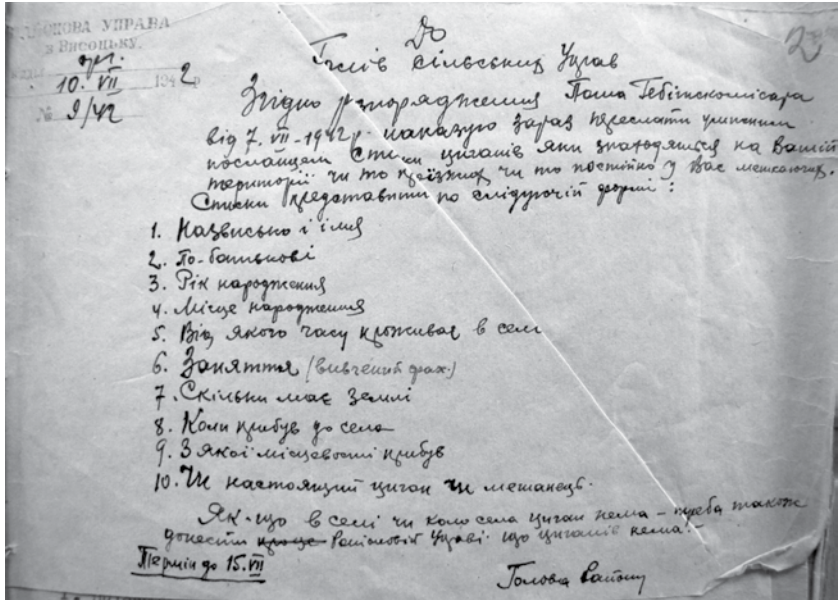 РАЙОНОВА УПРАВА
в Висоцьку.
2
10. VII 1942 р
№ 9/42
До
Голів Сільських Управ
Згідно розпорядження Пана Гебітскомісара
від 7. VII - 1942 р. наказую зараз переслати умисним
посланцем списки циганів яки знаходяться на Вашій
території чи то приїзних чи то постійно у Вас мешкаючих.
Списки представити по слідуючій формі:
1. Назвисько і імя
2. По-батькові
3. Рік народження
4. Місце народження
5. Від якого часу проживає в селі
6. Заняття (вивчений фах.)
7. Скільки має землі
8. Коли прибув до села
9. З якої місцевости прибув
10. Чи настоящий циган чи мешанець.
Як-що в селі чи коло села циган нема - треба також
донести Районовій Управі що циганів нема.-
Термін до 15. VII
Голова Району